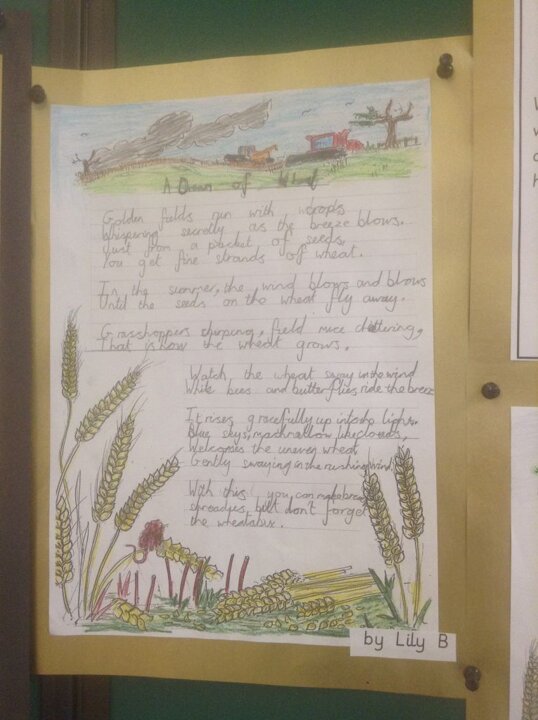 A of
Golden fields run with
Whispering secretly as the breeze blows.
Just from a packet of seeds,
You get fine strands of wheat.
In the summer, the wind blows and blows
Until the seeds on the wheat fly away.
Grasshoppers chirping, field mice chattering,
That is how the wheat grows.
Watch the wheat sway in the wind
While bees and butterflies ride the breeze
It rises gracefully up into the light.
Blue skys, marshmallow like clouds,
Welcomes the uneven wheat
Gently swaying in the rushing wind.
With this, you can make bread
but don't forget
the
by Lily B